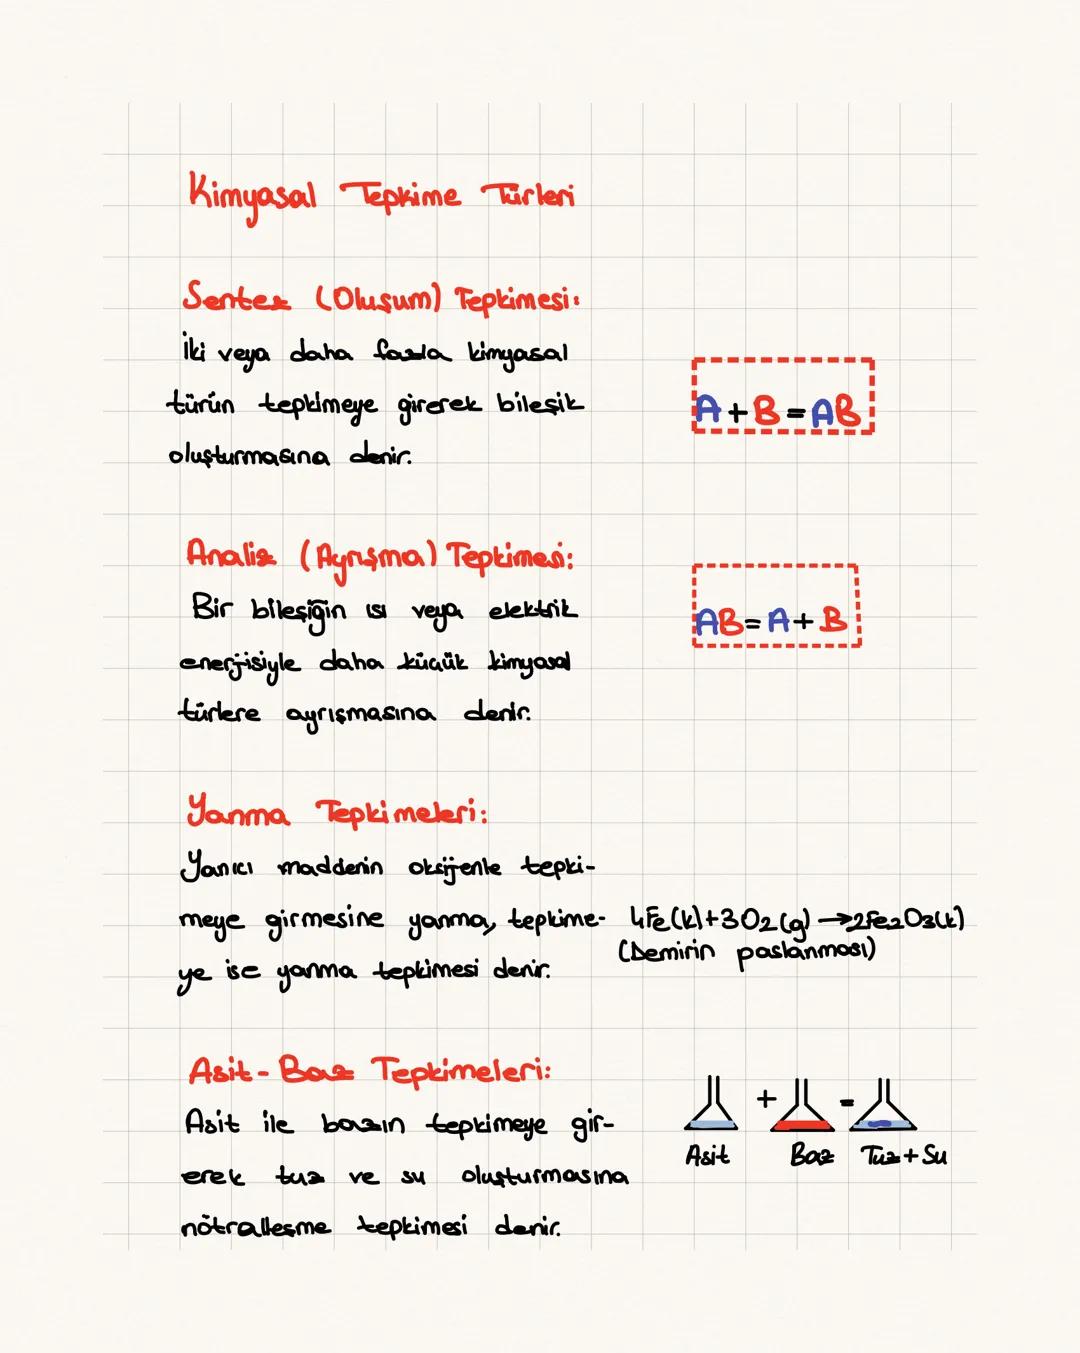 Kimyasal Tepkime Türleri
Sentez (Oluşum) Tepkimesi:
İki veya daha fazla kimyasal
türün tepkimeye girerek bileşik
oluşturmasına denir.
A + B = AB
Analiz (Ayrışma) Tepkimesi:
Bir bileşiğin ısı veya elektrik
enerjisiyle daha küçük kimyasal
türlere ayrışmasına denir.
AB = A + B
Yanma Tepkimeleri:
Yanıcı maddenin oksijenle tepki-
meye girmesine yanma, tepkime-
ye ise yanma tepkimesi denir.
4Fe(k)+3O2(g)→2Fe2O3(k)
(Demirin paslanması)
Asit-Baz Tepkimeleri:
Asit ile bazın tepkimeye gir-
erek tuz ve su oluşturmasına
nötralleşme tepkimesi denir.
+ =
Asit Baz Tuz+Su